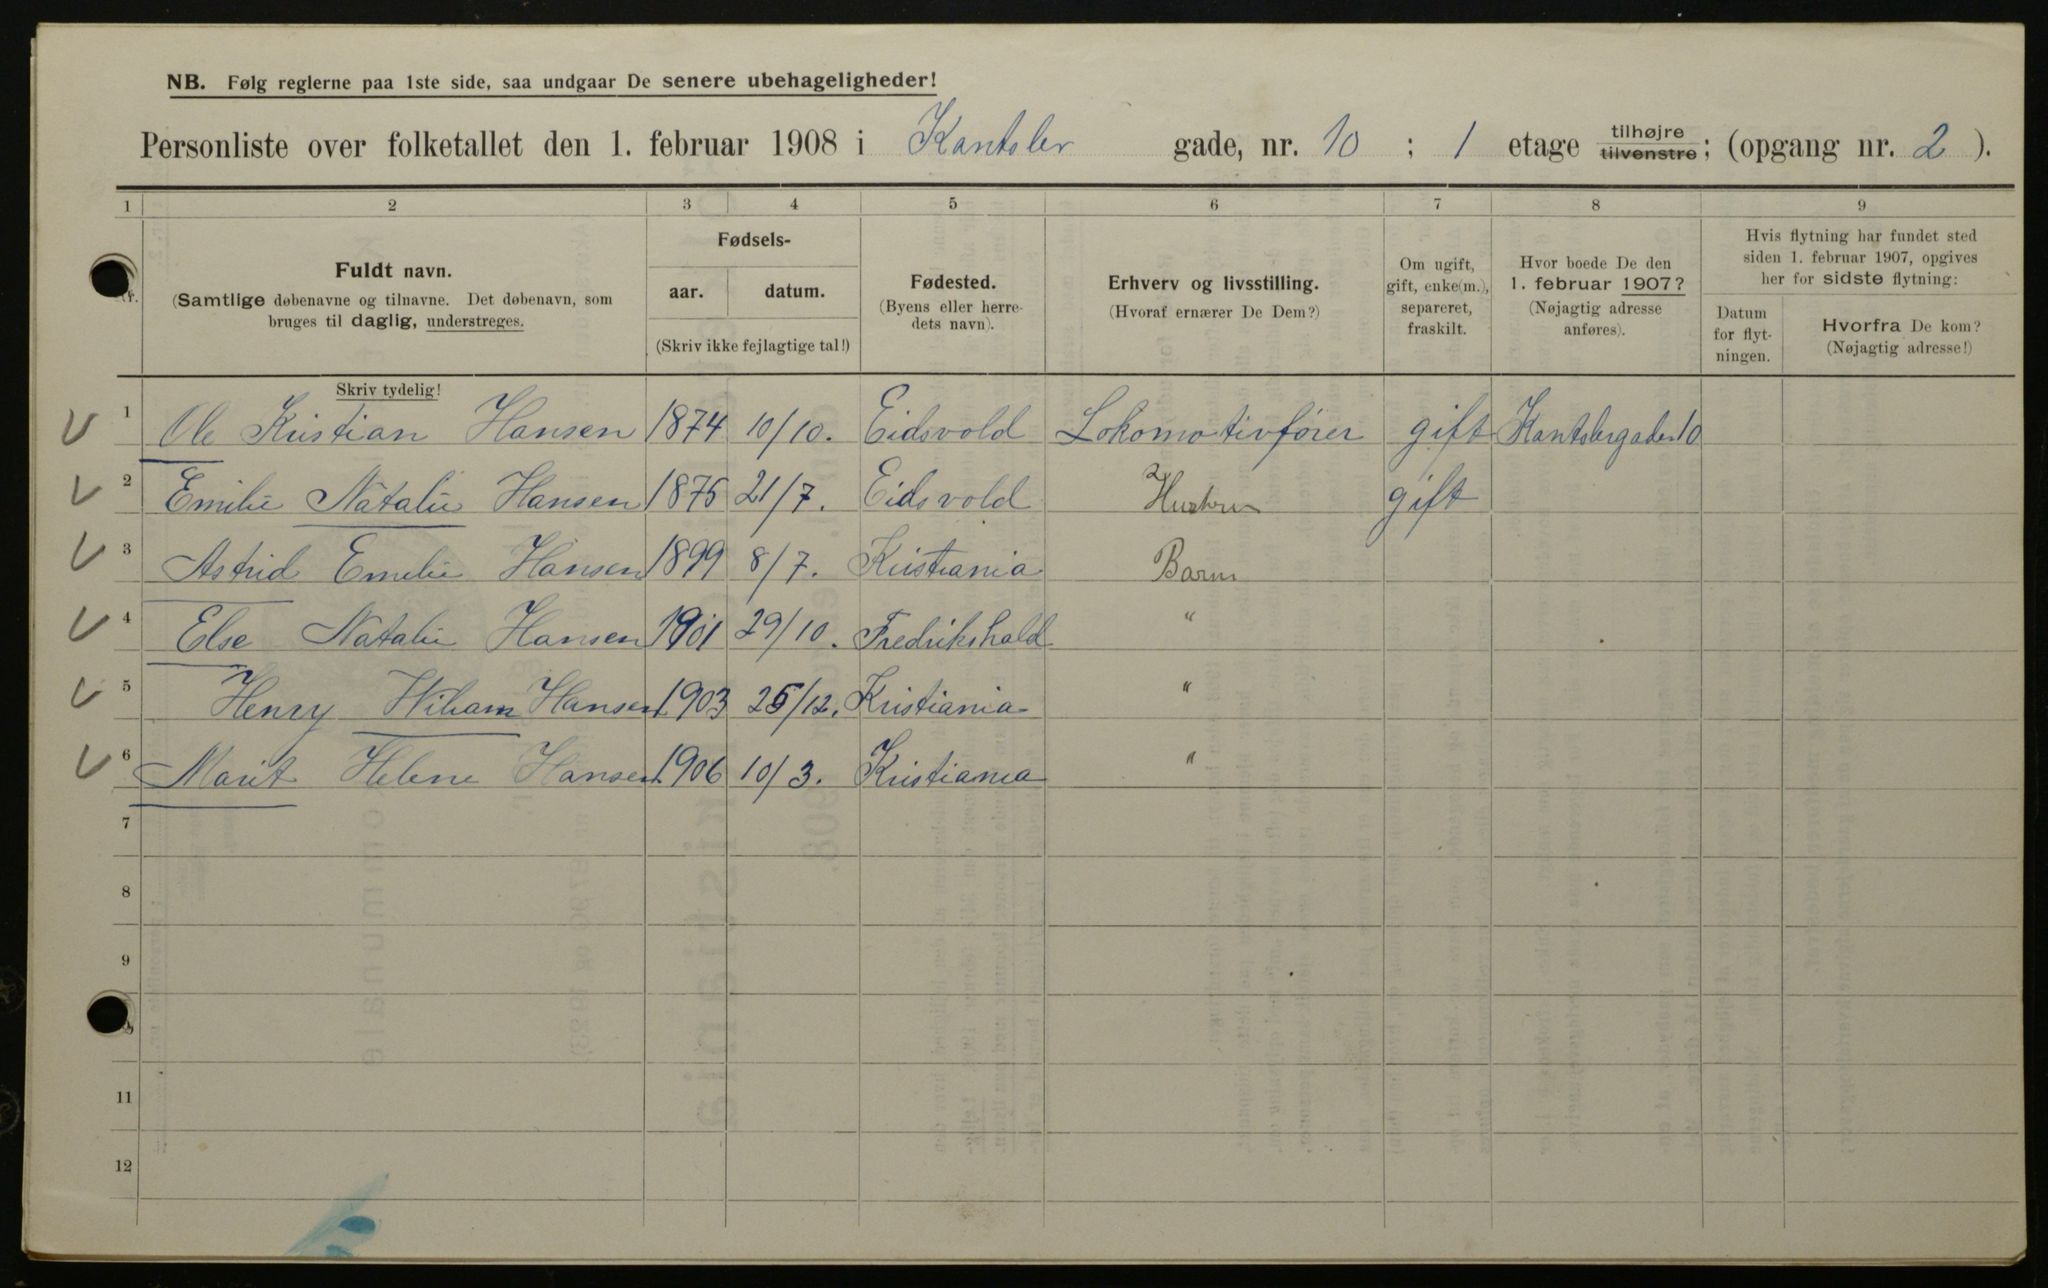 NB. Følg reglerne paa 1ste side, saa undgaar De senere ubehageligheder!
Personliste over folketallet den 1. februar 1908 i Kantsler gade, nr. 10 ; 1 etage tilhøjre tilvenstre ; (opgang nr. 2 ).
1 2 3 4 5 6 7 8 9
Nr.
Fuldt navn.
(Samtlige døbenavne og tilnavne. Det døbenavn, som
bruges til daglig, understreges.
Skriv tydelig!
Fødsels-
aar. datum.
(Skriv ikke fejlagtige tal!)
Fødested.
(Byens eller herre-
dets navn).
Erhverv og livsstilling.
(Hvoraf ernærer De Dem?)
Om ugift,
gift, enke(m.),
separeret,
fraskilt.
Hvor boede De den
1. februar 1907?
(Nøjagtig adresse
anføres).
Hvis flytning har fundet sted
siden 1. februar 1907, opgives
her for sidste flytning:
Datum
for flyt-
ningen.
Hvorfra De kom?
(Nøjagtig adresse!)
1 Ole Kristian Hansen 1874 10/10. Eidsvold Lokomotivfører gift Kantslergaden 10
2 Emilie Natalie Hansen 1875 21/7. Eidsvold Hustru gift
3 Astrid Emelie Hansen 1899 8/7. Kristiania Barn
4 Else Natalie Hansen 1901 29/10. Fredrikshald "
5 Henry Wiliam Hansen 1903 25/12. Kristiania "
6 Marit Helene Hansen 1906 10/3. Kristiania "
7
8
9
11
12